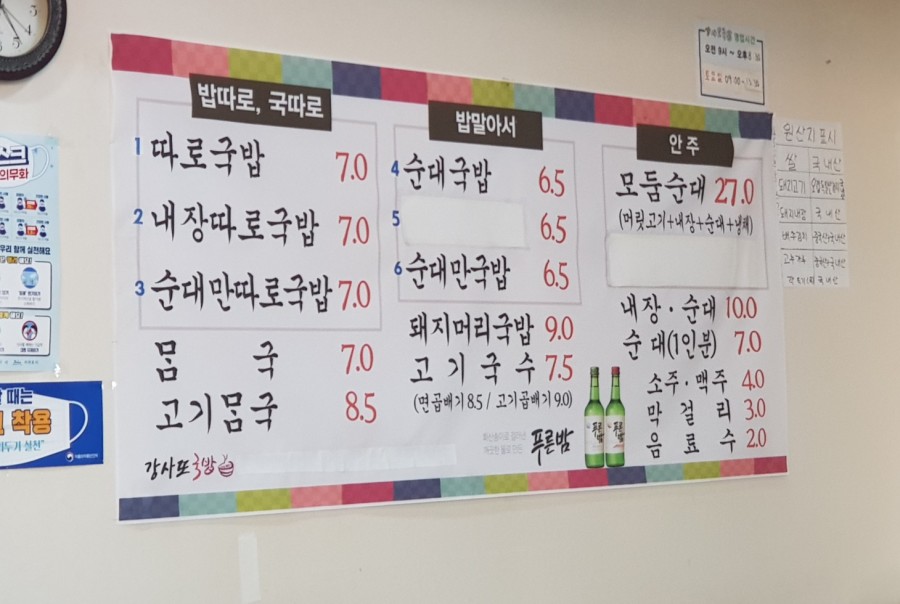 밥따로, 국따로
1 따로국밥 7.0
2 내장따로국밥 7.0
3 순대만따로국밥 7.0
몸 국 7.0
고기몸국 8.5
강사또국밥
밥말아서
4 순대국밥 6.5
5 6.5
6 순대만국밥 6.5
돼지머리국밥 9.0
고기국수 7.5
(면곱배기 8.5 / 고기곱배기 9.0)
푸른밤
안주
모둠순대 27.0
(머릿고기+내장+순대+냉채)
내장·순대 10.0
순대(1인분) 7.0
소주·맥주 4.0
막걸리 3.0
음료수 2.0
푸른밤
영업시간
오전 9시~오후
토요일 09:00~
원산지표시
쌀 국내산
돼지고기
돼지내장 국내산
배추김치 중국산
고춧가루
국내산
의무화
우리 함께 실천해요
할 때는
착용
두기 실천